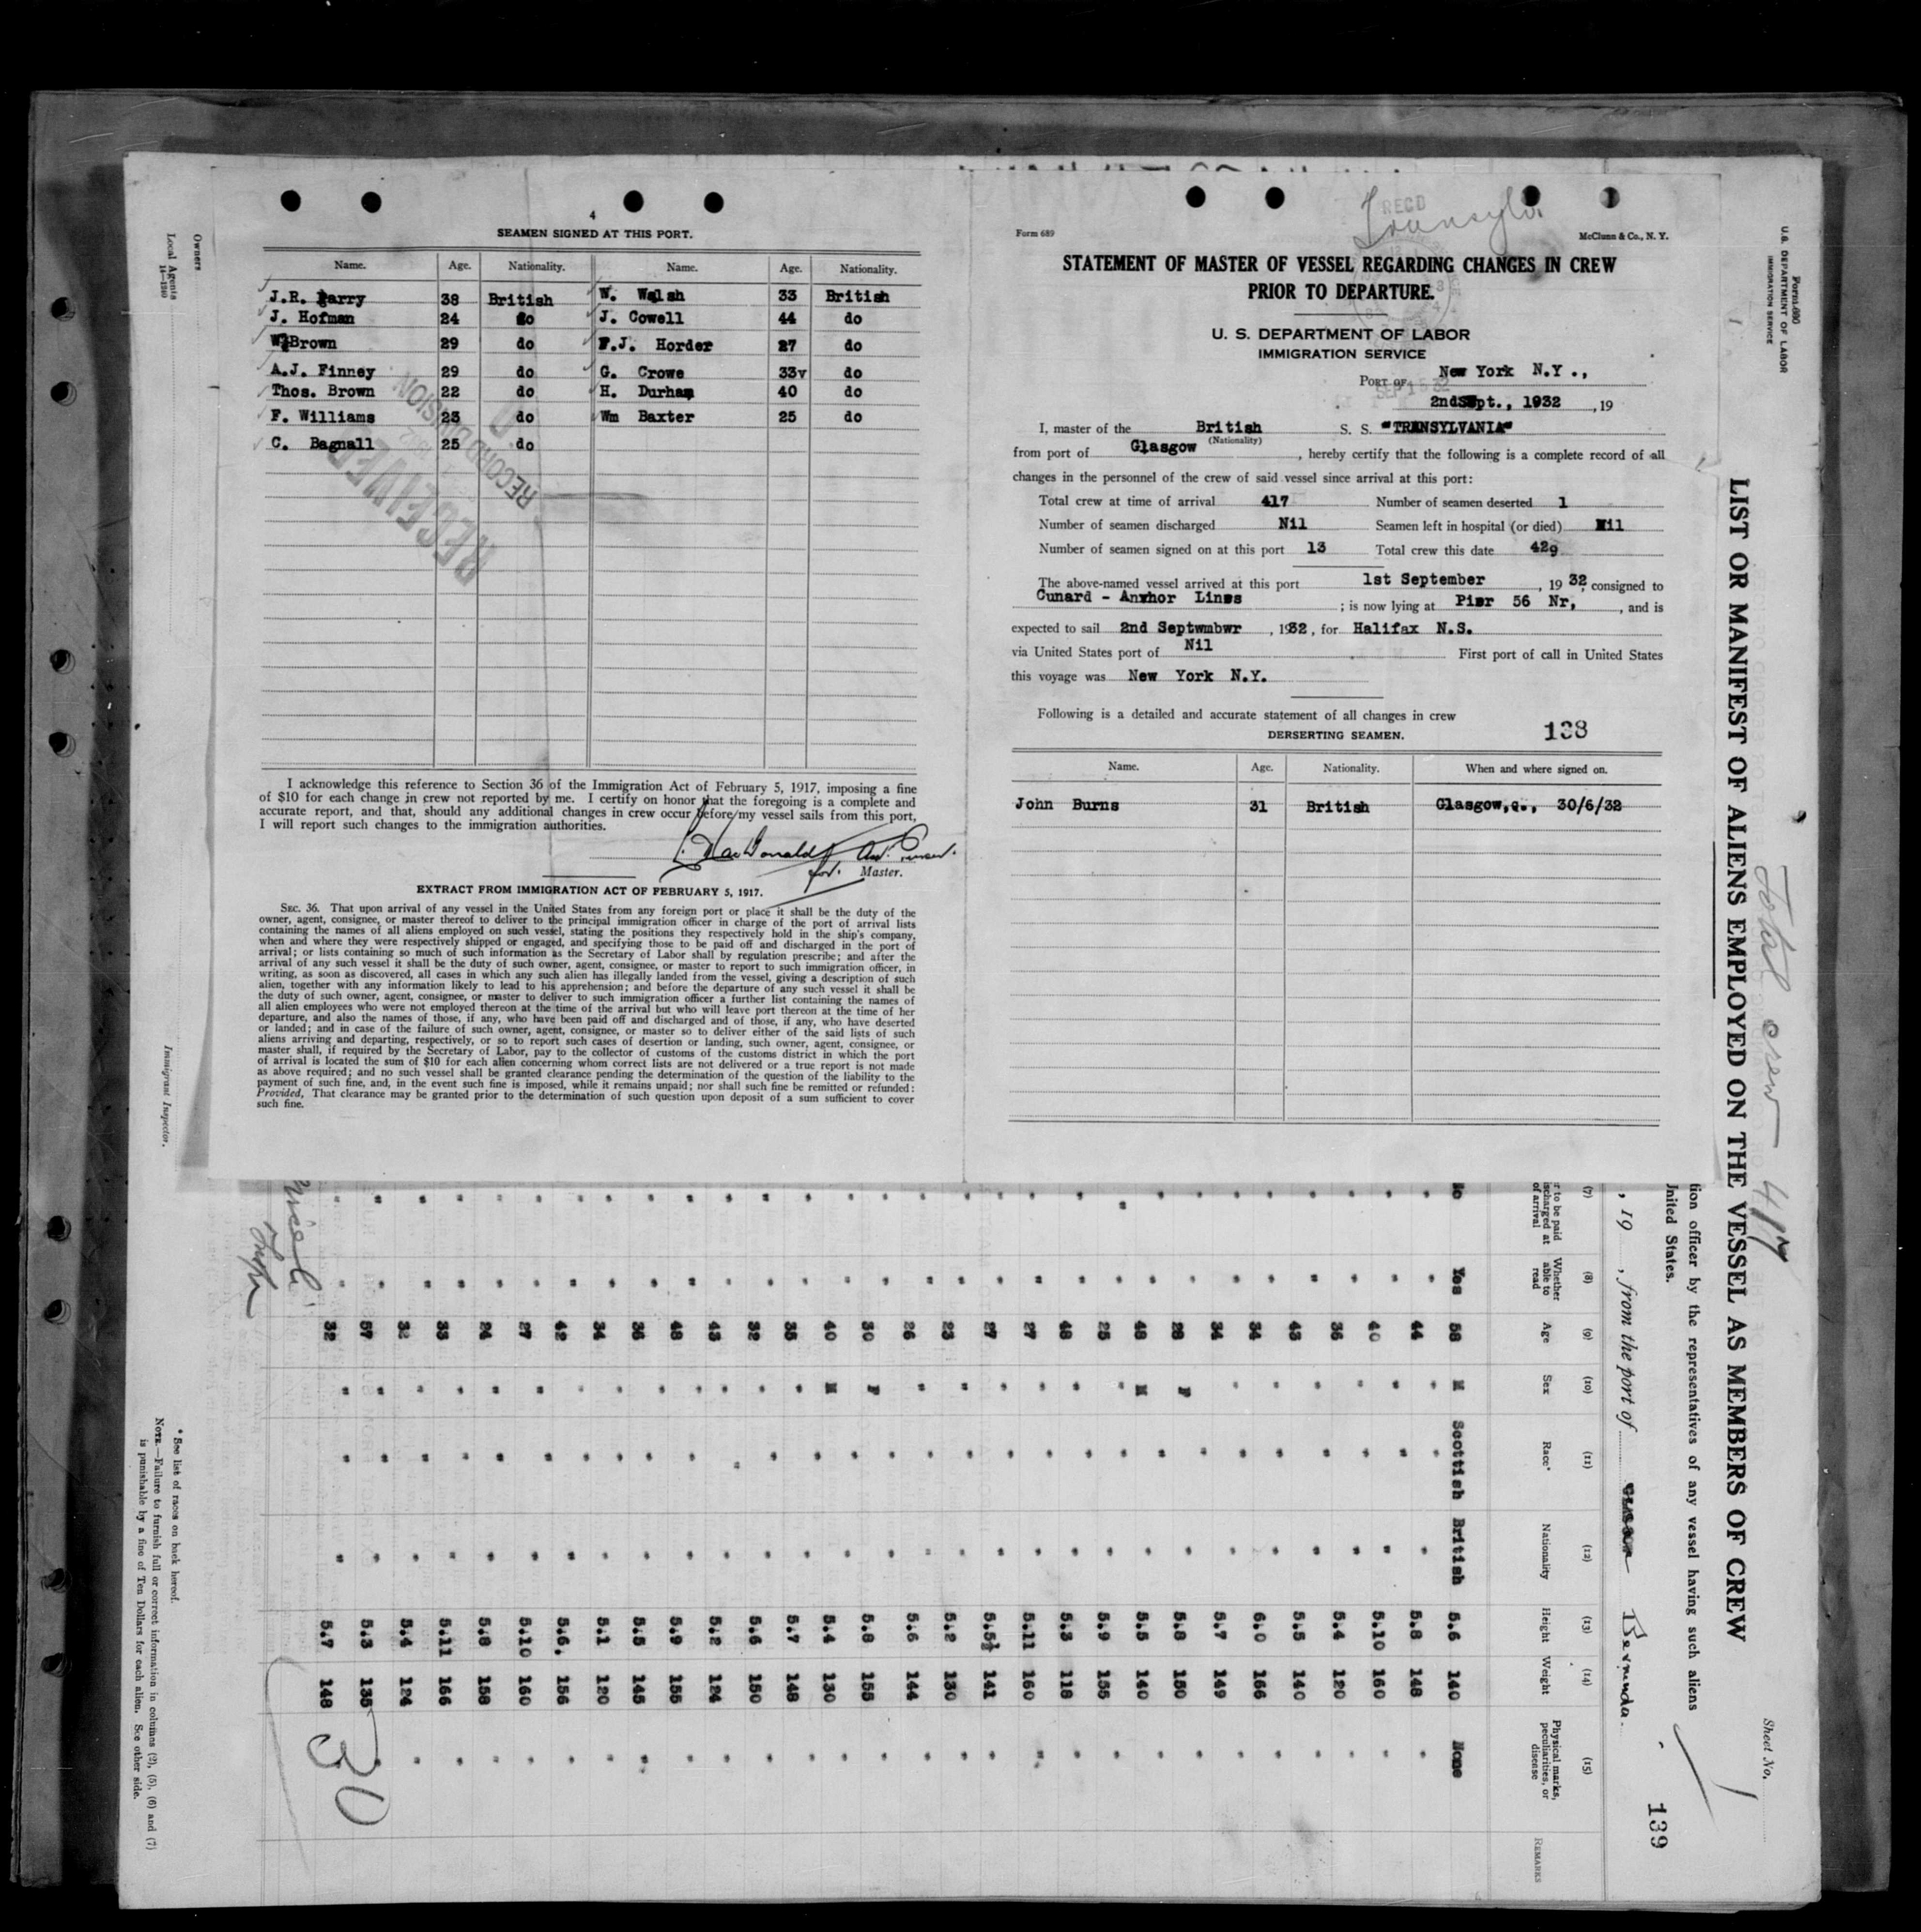 4
SEAMEN SIGNED AT THIS PORT.
Name. Age. Nationality. Name. Age. Nationality.
J.R. Parry 38 British W. Walsh 33 British
J. Hofman 24 do J. Cowell 44 do
W. Brown 29 do F.J. Horder 27 do
A.J. Finney 29 do G. Crowe 33v do
Thos. Brown 22 do H. Durham 40 do
F. Williams 23 do Wm Baxter 25 do
C. Bagnall 25 do
RECEIVED
RECORD DIVISION
I acknowledge this reference to Section 36 of the Immigration Act of February 5, 1917, imposing a fine
of $10 for each change in crew not reported by me. I certify on honor that the foregoing is a complete and
accurate report, and that, should any additional changes in crew occur before my vessel sails from this port,
I will report such changes to the immigration authorities.
MacDonald
for. Master.
EXTRACT FROM IMMIGRATION ACT OF FEBRUARY 5, 1917.
SEC. 36. That upon arrival of any vessel in the United States from any foreign port or place it shall be the duty of the
owner, agent, consignee, or master thereof to deliver to the principal immigration officer in charge of the port of arrival lists
containing the names of all aliens employed on such vessel, stating the positions they respectively hold in the ship's company,
when and where they were respectively shipped or engaged, and specifying those to be paid off and discharged in the port of
arrival; or lists containing so much of such information as the Secretary of Labor shall by regulation prescribe; and after the
arrival of any such vessel it shall be the duty of such owner, agent, consignee, or master to report to such immigration officer, in
writing, as soon as discovered, all cases in which any such alien has illegally landed from the vessel, giving a description of such
alien, together with any information likely to lead to his apprehension; and before the departure of any such vessel it shall be
the duty of such owner, agent, consignee, or master to deliver to such immigration officer a further list containing the names of
all alien employees who were not employed thereon at the time of the arrival but who will leave port thereon at the time of her
departure, and also the names of those, if any, who have been paid off and discharged and of those, if any, who have deserted
or landed; and in case of the failure of such owner, agent, consignee, or master so to deliver either of the said lists of such
aliens arriving and departing, respectively, or so to report such cases of desertion or landing, such owner, agent, consignee, or
master shall, if required by the Secretary of Labor, pay to the collector of customs of the customs district in which the port
of arrival is located the sum of $10 for each alien concerning whom correct lists are not delivered or a true report is not made
as above required; and no such vessel shall be granted clearance pending the determination of the question of the liability to the
payment of such fine, and, in the event such fine is imposed, while it remains unpaid; nor shall such fine be remitted or refunded:
Provided, That clearance may be granted prior to the determination of such question upon deposit of a sum sufficient to cover
such fine.
RECD
Form 689 McClunn & Co., N. Y.
STATEMENT OF MASTER OF VESSEL REGARDING CHANGES IN CREW
PRIOR TO DEPARTURE.
U. S. DEPARTMENT OF LABOR
IMMIGRATION SERVICE
PORT OF New York N.Y .,
2ndSept., 1932 , 19
I, master of the British S. S. "TRANSYLVANIA"
(Nationality)
from port of Glasgow , hereby certify that the following is a complete record of all
changes in the personnel of the crew of said vessel since arrival at this port:
Total crew at time of arrival 417 Number of seamen deserted 1
Number of seamen discharged Nil Seamen left in hospital (or died) Nil
Number of seamen signed on at this port 13 Total crew this date 429
The above-named vessel arrived at this port 1st September , 19 32, consigned to
Cunard - Anxhor Lines ; is now lying at Pier 56 Nr, , and is
expected to sail 2nd Septwmbwr , 1932 , for Halifax N.S.
via United States port of Nil First port of call in United States
this voyage was New York N.Y.
Following is a detailed and accurate statement of all changes in crew
138
DERSERTING SEAMEN.
Name. Age. Nationality. When and where signed on.
John Burns 31 British Glasgow, 30/6/32
Form 680
U.S. DEPARTMENT OF LABOR
IMMIGRATION SERVICE
Total crew 417
Sheet No. 1
LIST OR MANIFEST OF ALIENS EMPLOYED ON THE VESSEL AS MEMBERS OF CREW
tion officer by the representatives of any vessel having such aliens
United States.
139
, 19 , from the port of Glasgow Bermuda.
(7) (8) (9) (10) (11) (12) (13) (14) (15)
Whether able to read Age Sex Race* Nationality Height Weight Physical marks, peculiarities, or disease REMARKS
Yes 58 M Scottish British 5.6 140 None
44 " " " 5.8 148 "
40 " " " 5.10 160 "
36 " " " 5.4 120 "
43 " " " 5.5 140 "
34 " " " 6.0 166 "
34 " " " 5.7 149 "
28 F " " 5.8 150 "
48 M " " 5.5 140 "
25 " " " 5.9 155 "
48 " " " 5.3 118 "
27 " " " 5.11 160 "
27 " " " 5.5½ 141 "
23 " " " 5.2 130 "
26 " " " 5.6 144 "
30 F " " 5.8 155 "
40 M " " 5.4 130 "
35 " " " 5.7 148 "
32 " " " 5.6 150 "
43 " " " 5.2 124 "
48 " " " 5.9 155 "
36 " " " 5.5 145 "
34 " " " 5.1 120 "
42 " " " 5.6, 156 "
27 " " " 5.10 160 "
24 " " " 5.8 158 "
33 " " " 5.11 166 "
32 " " " 5.4 124 "
57 " " " 5.3 135 "
32 " " " 5.7 148
30
Owners
Local Agents
Immigrant Inspector.
* See list of races on back hereof.
NOTE.—Failure to furnish full or correct information in columns (2), (5), (6) and (7)
is punishable by a fine of Ten Dollars for each alien. See other side.
14—1240